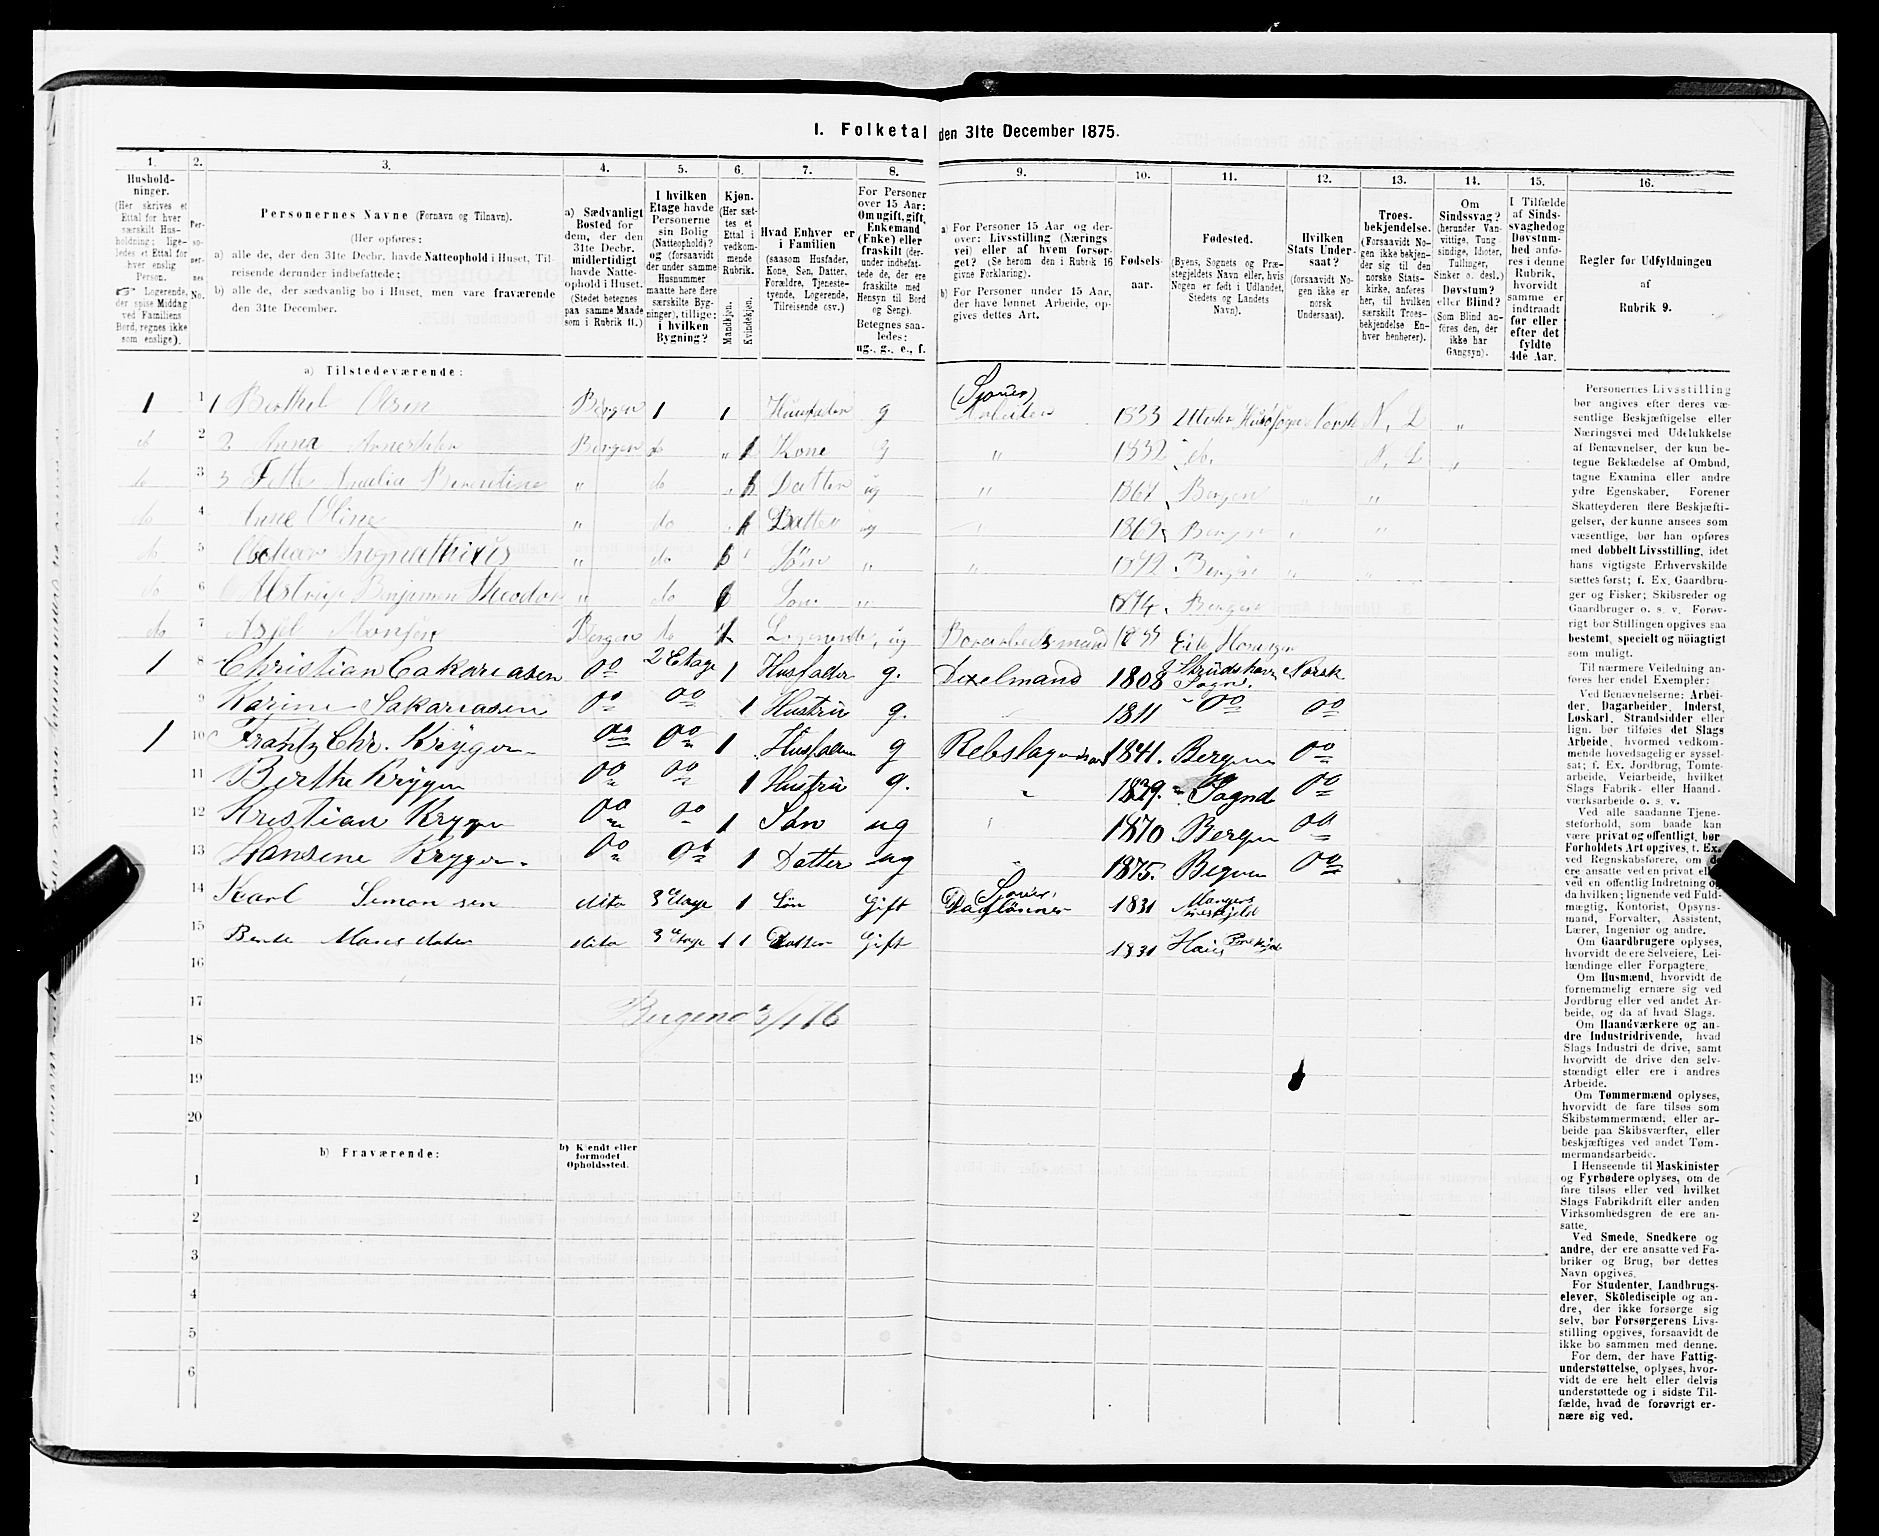 I. Folketal den 31te December 1875.
1. 2. 3. 4. 5. 6. 7. 8. 9. 10. 11. 12. 13. 14. 15. 16.
Hushold-
ninger.
(Her skrives et
Ettal for hver
særskilt Hus-
holdning; lige-
ledes et Ettal for
hver enslig
Person.
☞ Logerende,
der spise Middag
ved Familiens
Bord, regnes ikke
som enslige).
Per-
so-
ner-
nes
No.
Personernes Navne (Fornavn og Tilnavn).
(Her opføres:
a) alle de, der den 31te Decbr. havde Natteophold i Huset, Til-
reisende derunder indbefattede;
b) alle de, der sædvanlig bo i Huset, men vare fraværende
den 31te December.
a) Sædvanligt
Bosted for
dem, der den
31te Decbr.
midlertidigt
havde Natte-
ophold i Huset.
(Stedet betegnes
paa samme Maade
som i Rubrik 11.)
I hvilken
Etage havde
Personerne
sin Bolig
(Natteophold)?
og (forsaavidt
der under samme
Husnummer
maatte høre flere
særskilte Byg-
ninger), tillige:
i hvilken
Bygning?
Kjøn.
(Her sæt-
tes et
Ettal i
vedkom-
mende
Rubrik.
Mandkjøn.
Kvindekjøn.
Hvad Enhver er
i Familien
(saasom Husfader,
Kone, Søn, Datter,
Forældre, Tjeneste-
tyende, Logerende,
Tilreisende osv.)
For Personer
over 15 Aar:
Om ugift, gift,
Enkemand
(Enke) eller
fraskilt (der-
under indbefat-
tede de, der ere
fraskilte med
Hensyn til Bord
og Seng).
Betegnes saa-
ledes:
ug., g., e., f.
a) For Personer 15 Aar og der-
over: Livsstilling (Nærings
vei) eller af hvem forsør-
get? (Se herom den i Rubrik 16
givne Forklaring).
b) For Personer under 15 Aar,
der have lønnet Arbeide, op-
gives dettes Art.
Fødsels-
aar.
Fødested.
(Byens, Sognets og Præ-
stegjeldets Navn eller, hvis
Nogen er født i Udlandet,
Stedets og Landets
Navn).
Hvilken
Stats Under-
saat?
(forsaavidt No-
gen ikke er
norsk
Undersaat).
Troes-
bekjendelse.
(Forsaavidt No-
gen ikke bekjen-
der sig til den
norske Stats-
kirke, anføres
her, til hvilken
særskilt Troes-
bekjendelse En-
hver henhører).
Om
Sindssvag?
(herunder Van-
vittige, Tung-
sindige, Idioter,
Tullinger,
Sinker o. desl.)
Døvstum?
eller Blind?
(Som Blind an-
føres den, der
ikke har
Gangsyn).
I Tilfælde
af Sinds-
svaghed og
Døvstum-
hed anfø-
res i denne
Rubrik,
hvorvidt
samme er
indtraadt
før eller
efter det
fyldte
4de Aar.
Regler for Udfyldningen
af
Rubrik 9.
a) Tilstedeværende:
1 1 1 Berthel Olsen Bergen 1 1 Husfader g (Sjouer) Arbeider 1833 Norsk N. L "
do 2 2 Anna Bergen do " 1 Kone g " 1832 do. N. L "
do 3 3 " do " 1 Datter ug " 1867 Bergen " "
do 4 Anne Oline " do 1 Datter ug " 1869 Bergen " "
do 5 " do 1 Søn " " 1872 Bergen " "
do 6 Benjamin Theodor " do 1 Søn " 1874 Bergen
do 7 Monsen Bergen do 1 Logerende, ug
1 8 Christian Cakariasen Do 2 Etage 1 Husfader g. Dexelmand 1808 Norsk
9 Karine Sakariasen Do Do 1 Hustru g. 1811 " Do Do
1 10 Frantz Chr. Krÿger Do Do 1 Husfader g 1841. Bergen Do
11 Berthe Krÿger Do Do 1 Hustru g. " 1829. " Sognd Do
12 Kristian Kryger Do Do 1 Søn ug " 1870 Bergen Do
13 Hansene Kryger Do Do 1 Datter ug " 1875. Bergen Do
14 Karl Simonsen dito 3 Etage 1 Søn Gift Sjouer, Daglønner 1831 Mangers Prestejeld
15 dito 3 Etage 1 1 Datter Gift 1831 Haus
16
17
Bergen 3/1 76
18
19
20
b) Fraværende:
b) Kjendt eller
formodet
Opholdssted.
1
2
3
4
5
6
Personernes Livsstilling
bør angives efter deres væ-
sentlige Beskjæftigelse eller
Næringsvei med Udelukkelse
af Benævnelser, der kun be-
tegne Beklædelse af Ombud,
tagne Examina eller andre
ydre Egenskaber. Forener
Skatteyderen flere Beskjæfti-
gelser, der kunne ansees som
væsentlige, bør han opføres
med dobbelt Livsstilling, idet
hans vigtigste Erhvervskilde
sættes først; f. Ex. Gaardbru-
ger og Fisker; Skibsreder og
Gaardbruger o. s. v. Forøv-
rigt bør Stillingen opgives saa
bestemt, specielt og nöiagtigt
som muligt.
Til nærmere Veiledning an-
føres her endel Exempler:
Ved Benævnelserne: Arbei-
der, Dagarbeider, Inderst,
Løskarl, Strandsidder eller
lign. bør tilføies det Slags
Arbeide, hvormed vedkom-
mende hovedsagelig er syssel-
sat; f. Ex. Jordbrug, Tomte-
arbeide, Veiarbeide, hvilket
Slags Fabrik- eller Haand-
værksarbeide o. s. v.
Ved alle saadanne Tjene-
steforhold, som baade kan
være privat og offentligt, bør
Forholdets Art opgives, f. Ex.
ved Regnskabsførere, om de
ere ansatte ved en privat eller
ved en offentlig Indretning og
da hvilken; lignende ved Fuld-
mægtig, Kontorist, Opsyns-
mand, Forvalter, Assistent,
Lærer, Ingeniør og andre.
Om Gaardbrugere oplyses,
hvorvidt de ere Selveiere, Lei-
lændinge eller Forpagtere.
Om Husmænd, hvorvidt de
fornemmelig ernære sig ved
Jordbrug eller ved andet Ar-
beide, og da af hvad Slags.
Om Haandværkere og an-
dre Industridrivende, hvad
Slags Industri de drive, samt
hvorvidt de drive den selv-
stændigt eller ere i andres
Arbeide.
Om Tømmermænd oplyses,
hvorvidt de fare tilsøs som
Skibstømmermænd, eller ar-
beide paa Skibsværfter, eller
beskjæftiges ved andet Tøm-
mermandsarbeide.
I Henseende til Maskinister
og Fyrbødere oplyses, om de
fare tilsøs eller ved hvilket
Slags Fabrikdrift eller anden
Virksomhedsgren de ere an-
satte.
Ved Smede, Snedkere og
andre, der ere ansatte ved Fa-
briker og Brug, bør dettes
Navn opgives.
For Studenter, Landbrugs-
elever, Skoledisciple og an-
dre, der ikke forsørge sig
selv, bør Forsørgerens Livs-
stilling opgives, forsaavidt de
ikke bo sammen med denne.
For dem, der have Fattig-
understøttelse, oplyses, hvor-
vidt de ere helt eller delvis
understøttede og i sidste Til-
fælde, hvad de forøvrigt er-
nære sig ved.